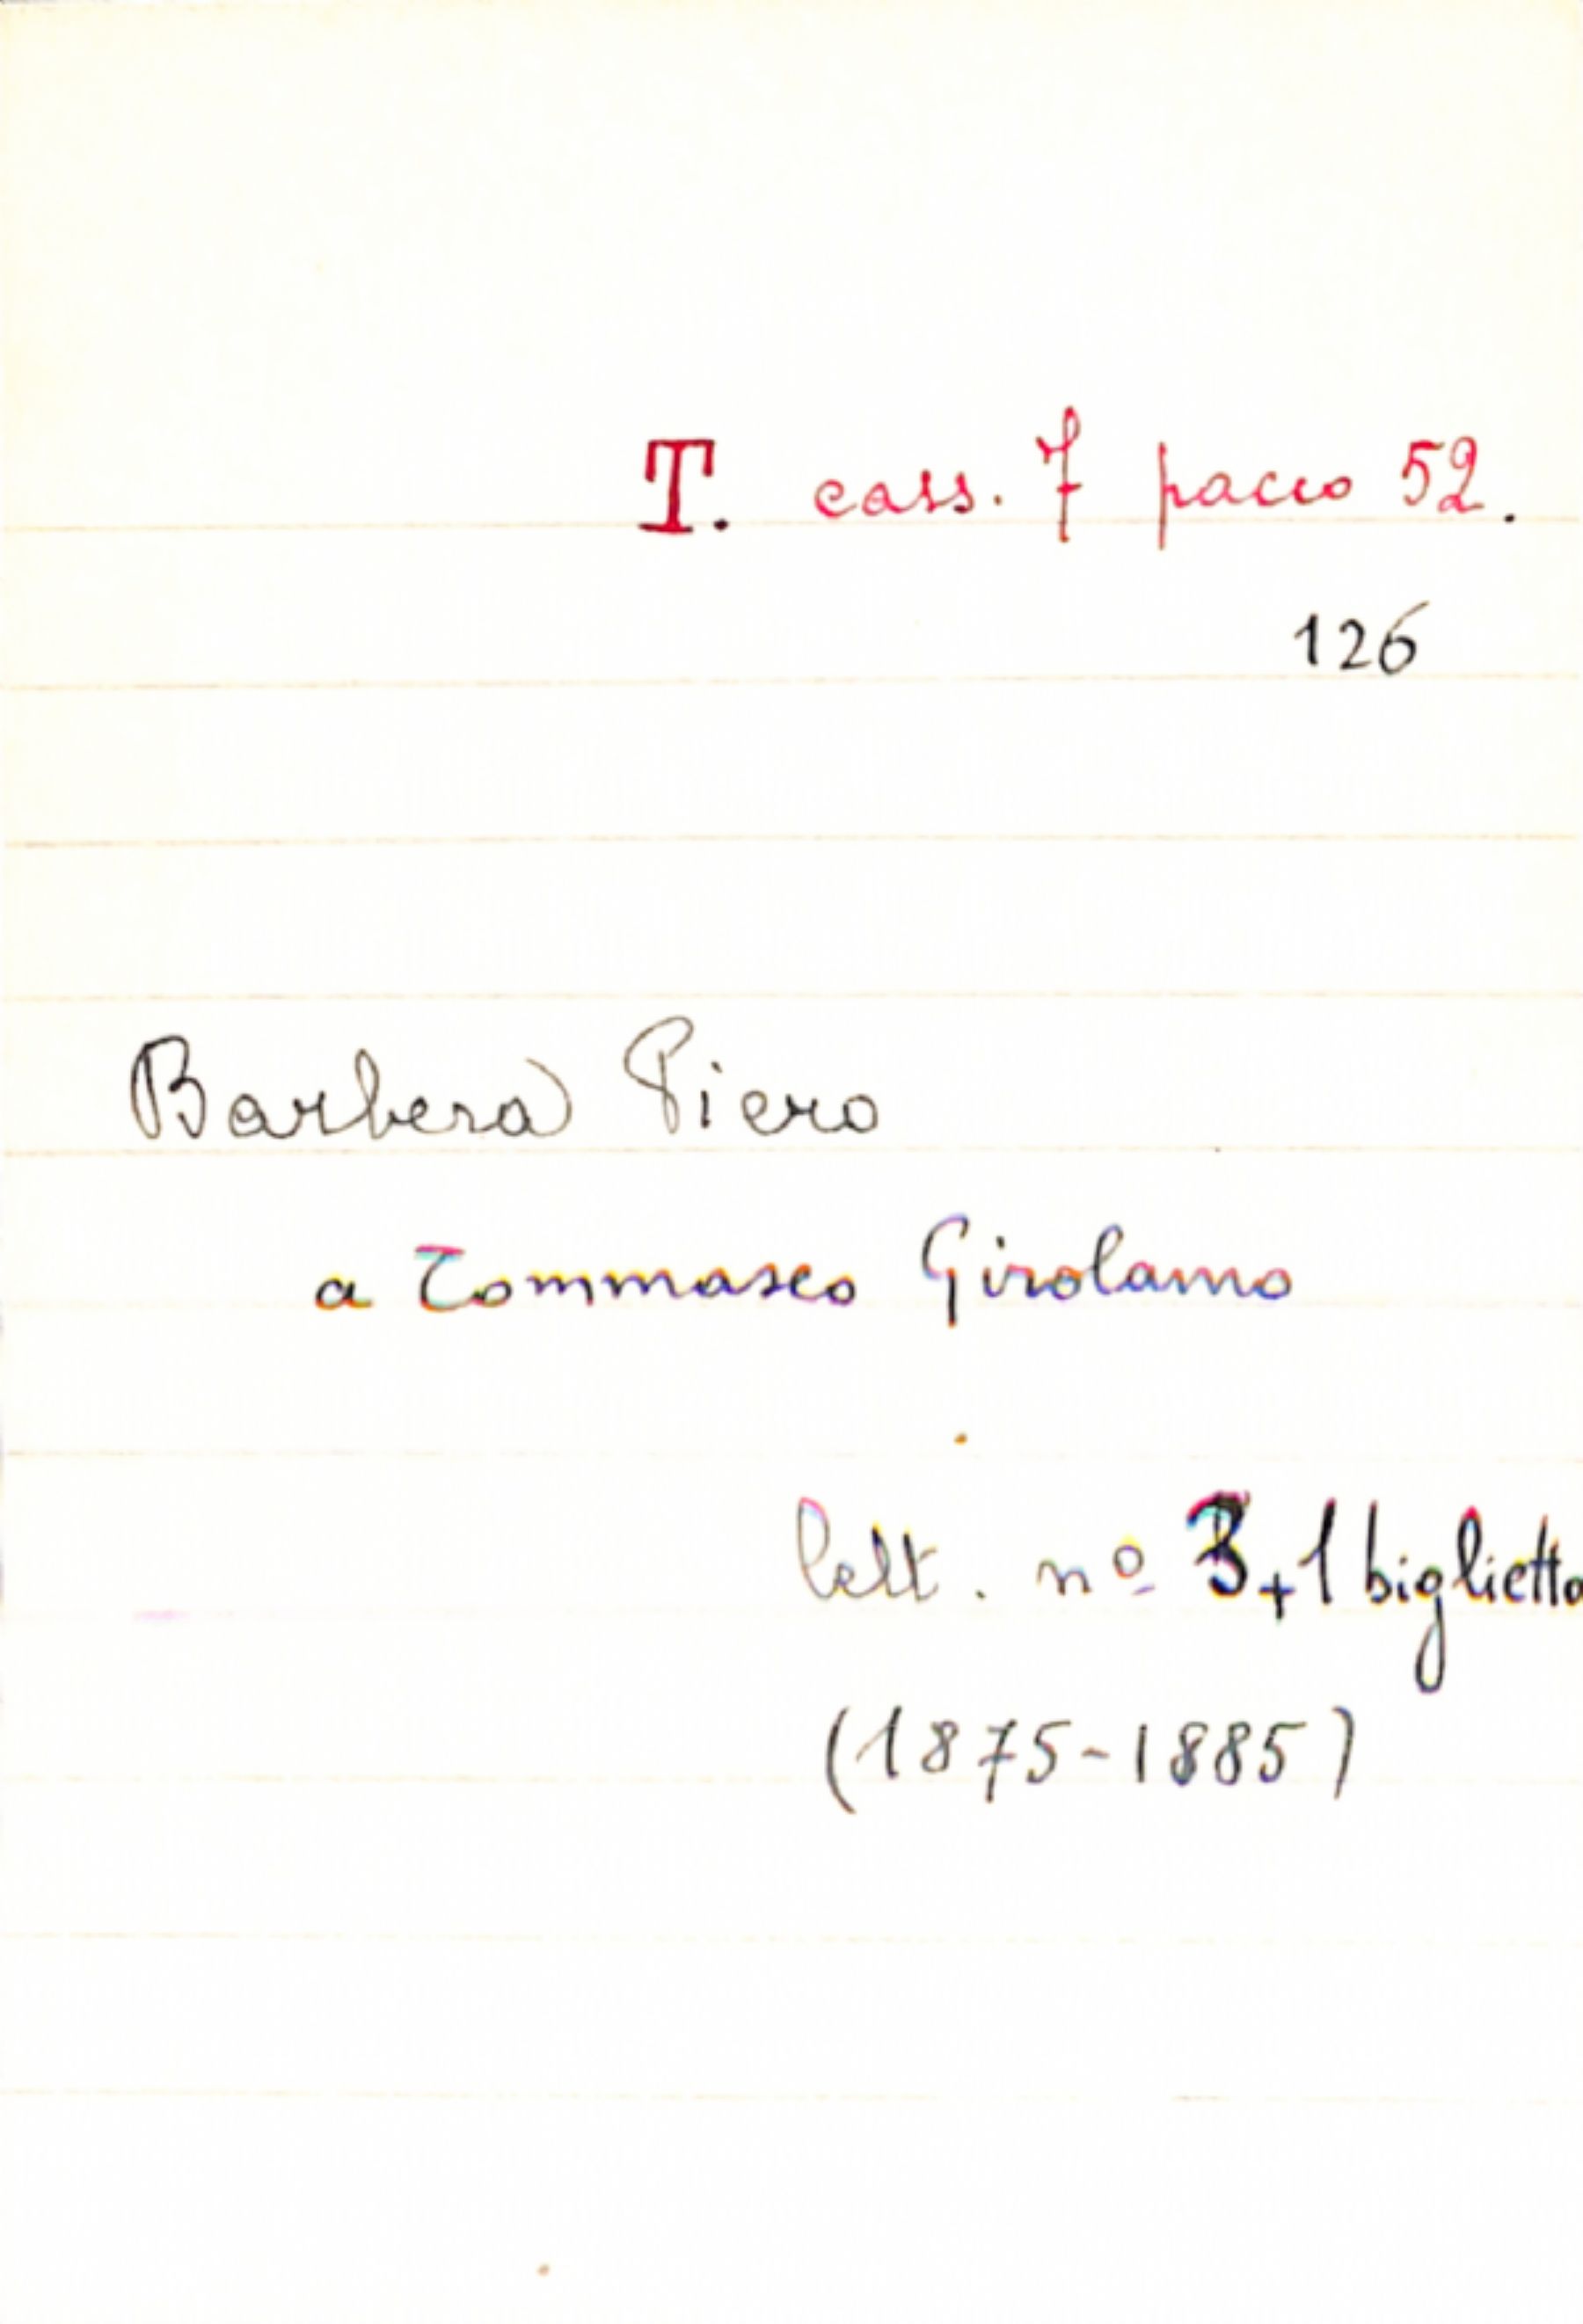 T. cass. 7 pacco 52.
126
Barbera Piero
a Tommaseo Girolamo
lett. nº 3+1 biglietto
(1875-1885)